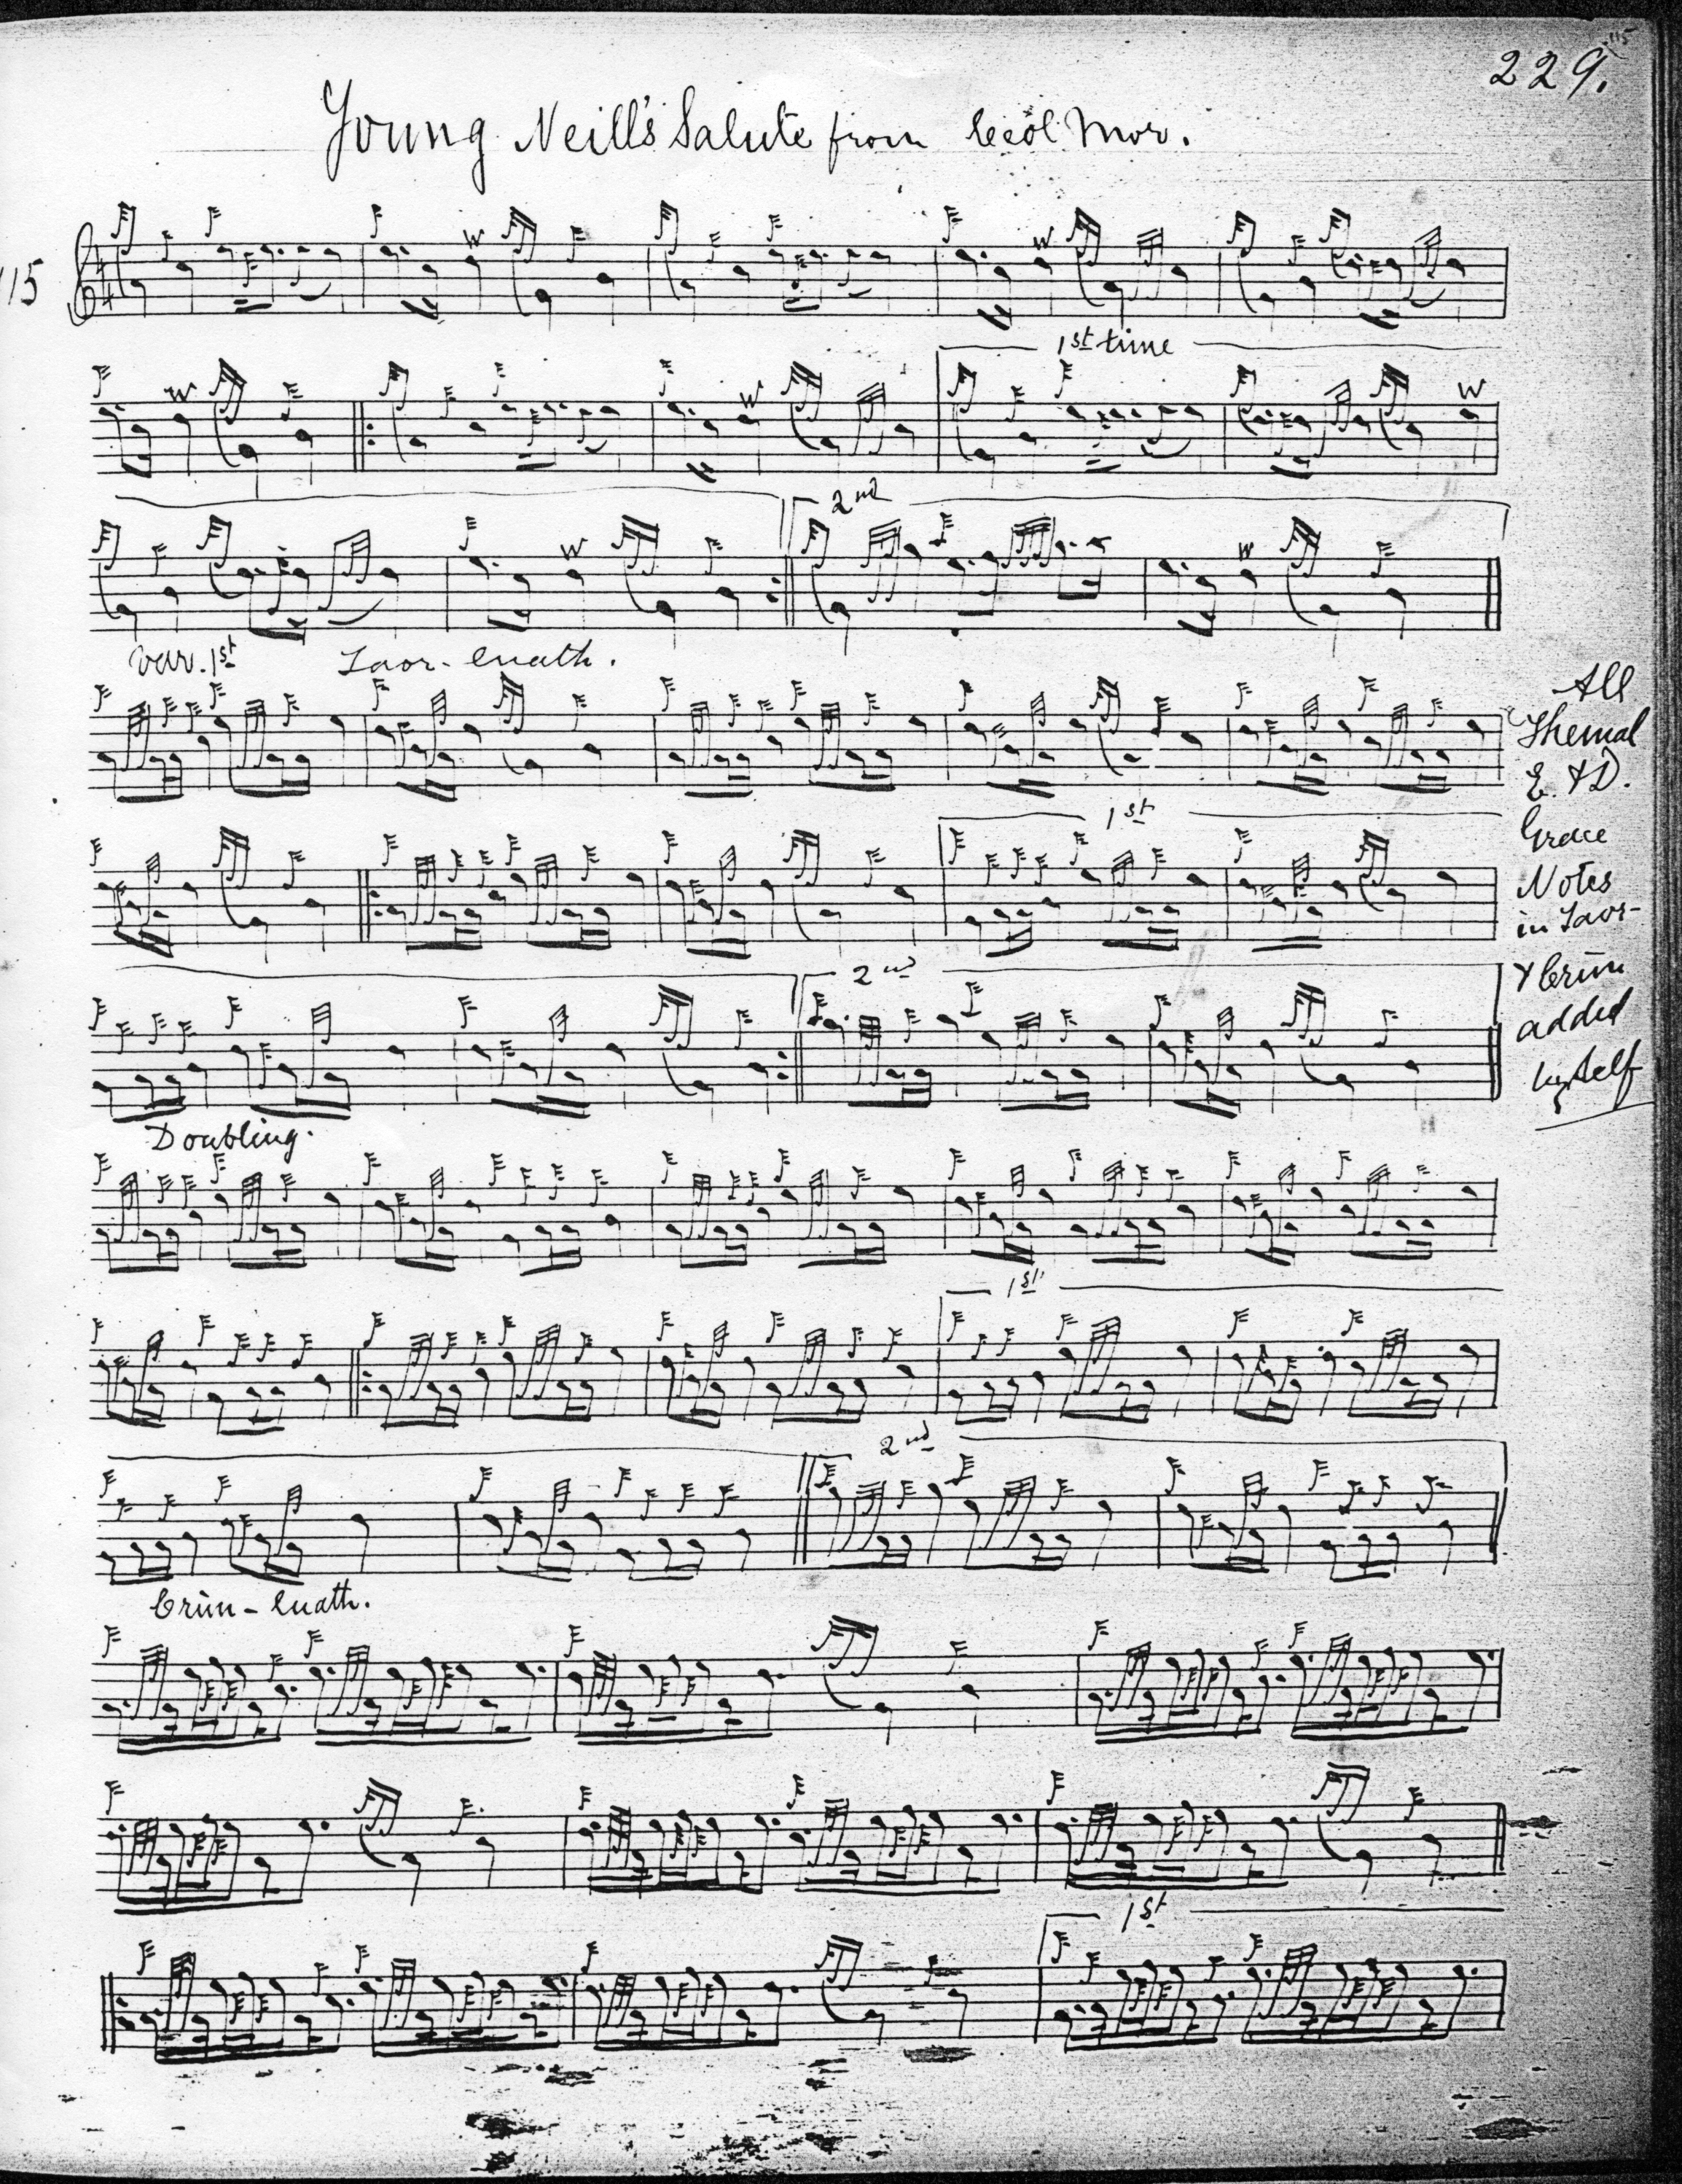 115
229.
Young Neill's Salute from Ceòl Mor.
115
W W
1st time
W W W
2nd
W W
Var. 1st Taor-luath.
All
Themal
E. & D.
Grace
Notes
in Taor-
& Crùn
added
by self
1st
2nd
Doubling.
1st
2nd
Crùn-luath.
1st